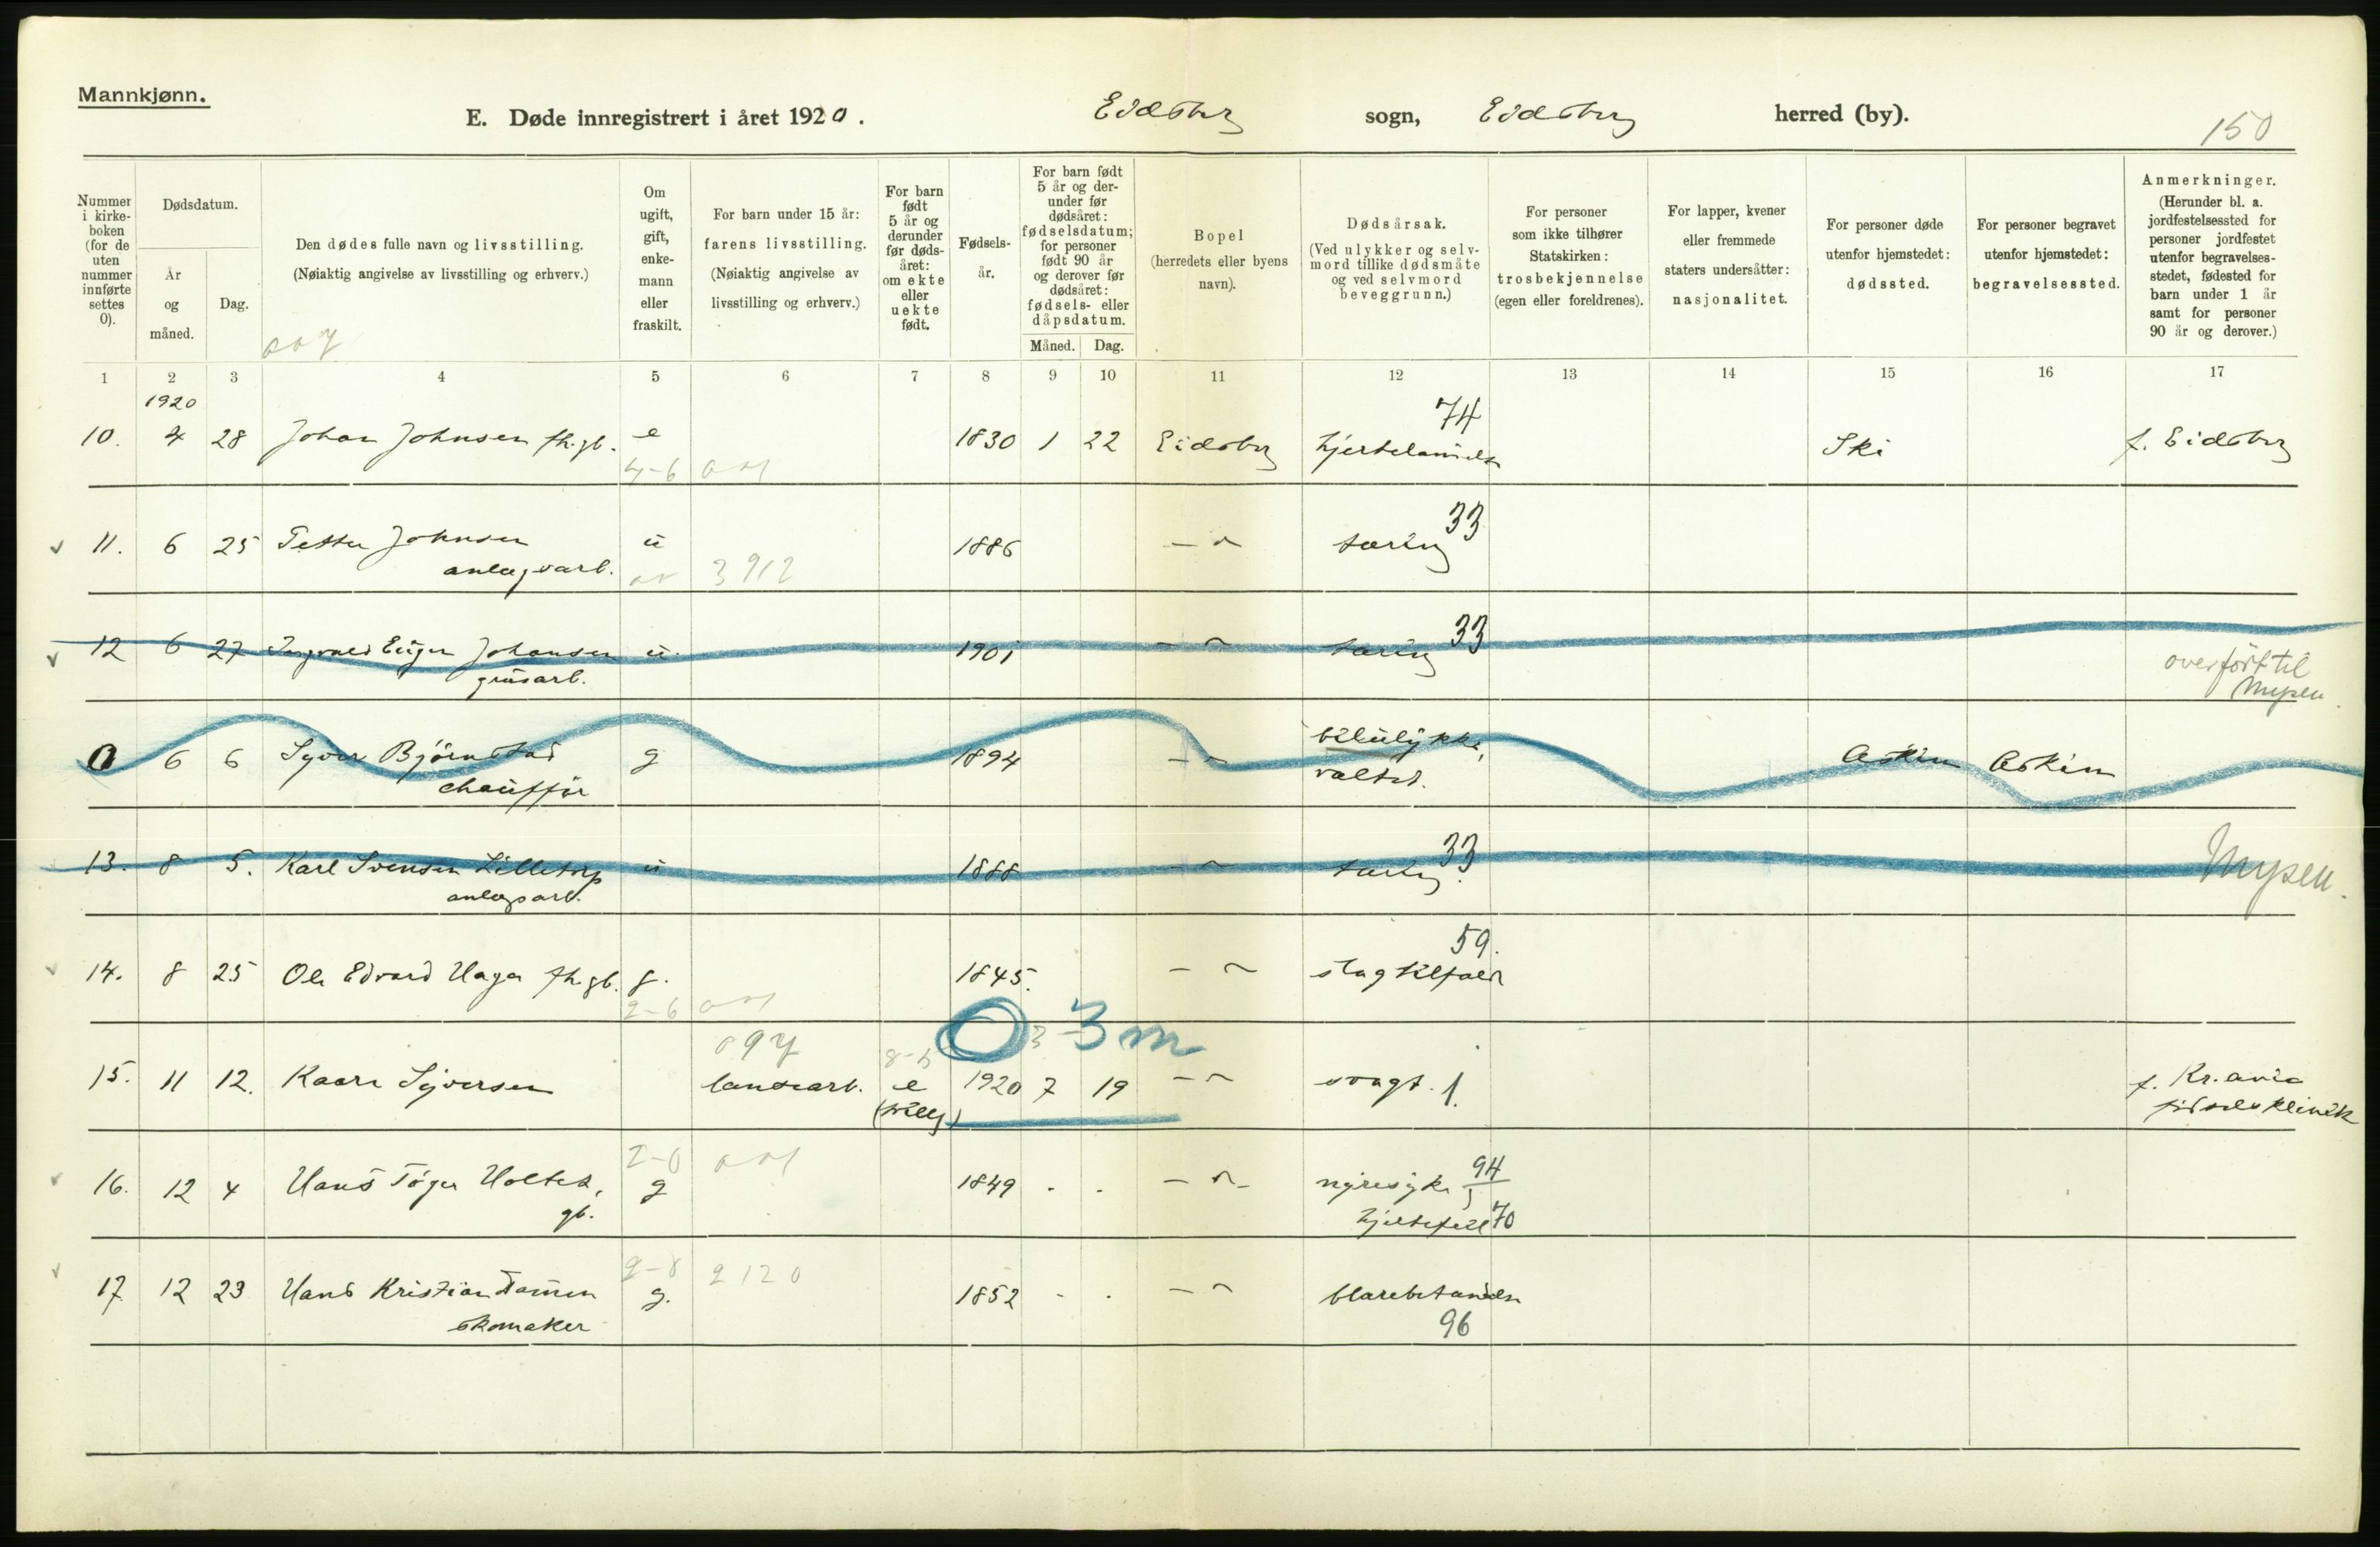 Mannkjønn.
E. Døde innregistrert i året 1920. Eidsberg sogn, Eidsberg herred (by).
150
Nummer i kirke-boken (for de uten nummer innførte settes 0).
Dødsdatum.
År og måned.
Dag.
Den dødes fulle navn og livsstilling.
(Nøiaktig angivelse av livsstilling og erhverv.)
Om ugift, gift, enke-mann eller fraskilt.
For barn under 15 år: farens livsstilling.
(Nøiaktig angivelse av livsstilling og erhverv.)
For barn født 5 år og derunder før døds-året: om ekte eller uekte født.
Fødsels-år.
For barn født 5 år og der-under før dødsåret: fødselsdatum; for personer født 90 år og derover før dødsåret: fødsels- eller dåpsdatum.
Måned. Dag.
Bopel
(herredets eller byens navn).
Dødsårsak.
(Ved ulykker og selv-mord tillike dødsmåte og ved selvmord beveggrunn.)
For personer som ikke tilhører Statskirken: trosbekjennelse (egen eller foreldrenes).
For lapper, kvener eller fremmede staters undersåtter: nasjonalitet.
For personer døde utenfor hjemstedet: dødssted.
For personer begravet utenfor hjemstedet: begravelsessted.
Anmerkninger.
(Herunder bl. a. jordfestelsessted for personer jordfestet utenfor begravelses-stedet, fødested for barn under 1 år samt for personer 90 år og derover.)
1 2 3 4 5 6 7 8 9 10 11 12 13 14 15 16 17
1920
74
10. 4 28 Johan Johnsen fh.gb. e 1830 1 22 Eidsberg hjertelammelse Ski f. Eidsberg
4-6
33
✓ 11. 6 25 Petter Johnsen u 1886 — " — tæring
anlægsarb. 3912
33
✓ 12 6 27 Ingvald Eugen Johansen u. 1901 — " — tæring
grusarb. overført til
Mysen
biluulykke,
0 6 6 Syver Bjørnstad g 1894 — " — veltet. Askim Askim
chauffør
33
13. 8 5. Karl Svensen Lilletorp u 1888 — " — tæring. Mysen.
anlægsarb.
59.
✓ 14. 8 25 Ole Edvard Haga fh.gb. g. 1845. — " — slagtilfæld
2-6
0 3 3 m
8-5
15. 11 12. Kaare Syversen landearb. e 1920 7 19 — " — svagt. 1. f. Kr.ania
fødselsklinik
2-0
✓ 16. 12 4 Hans Tøger Holtet, g 1849 - . — " — nyresyke 94
gb. hjertefeil 70
2-8 2120
✓ 17 12 23 Hans Kristian g. 1852 - . — " —
skomaker 96